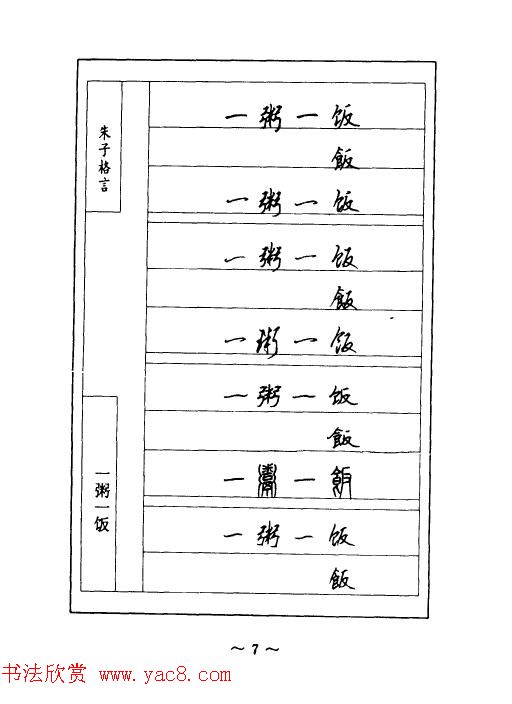 朱子格言
一粥一饭
一粥一饭
飯
一粥一饭
一粥一饭
飯
一粥一饭
一粥一饭
飯
一粥一飯
一粥一饭
飯
~7~
书法欣赏 www.yac8.com